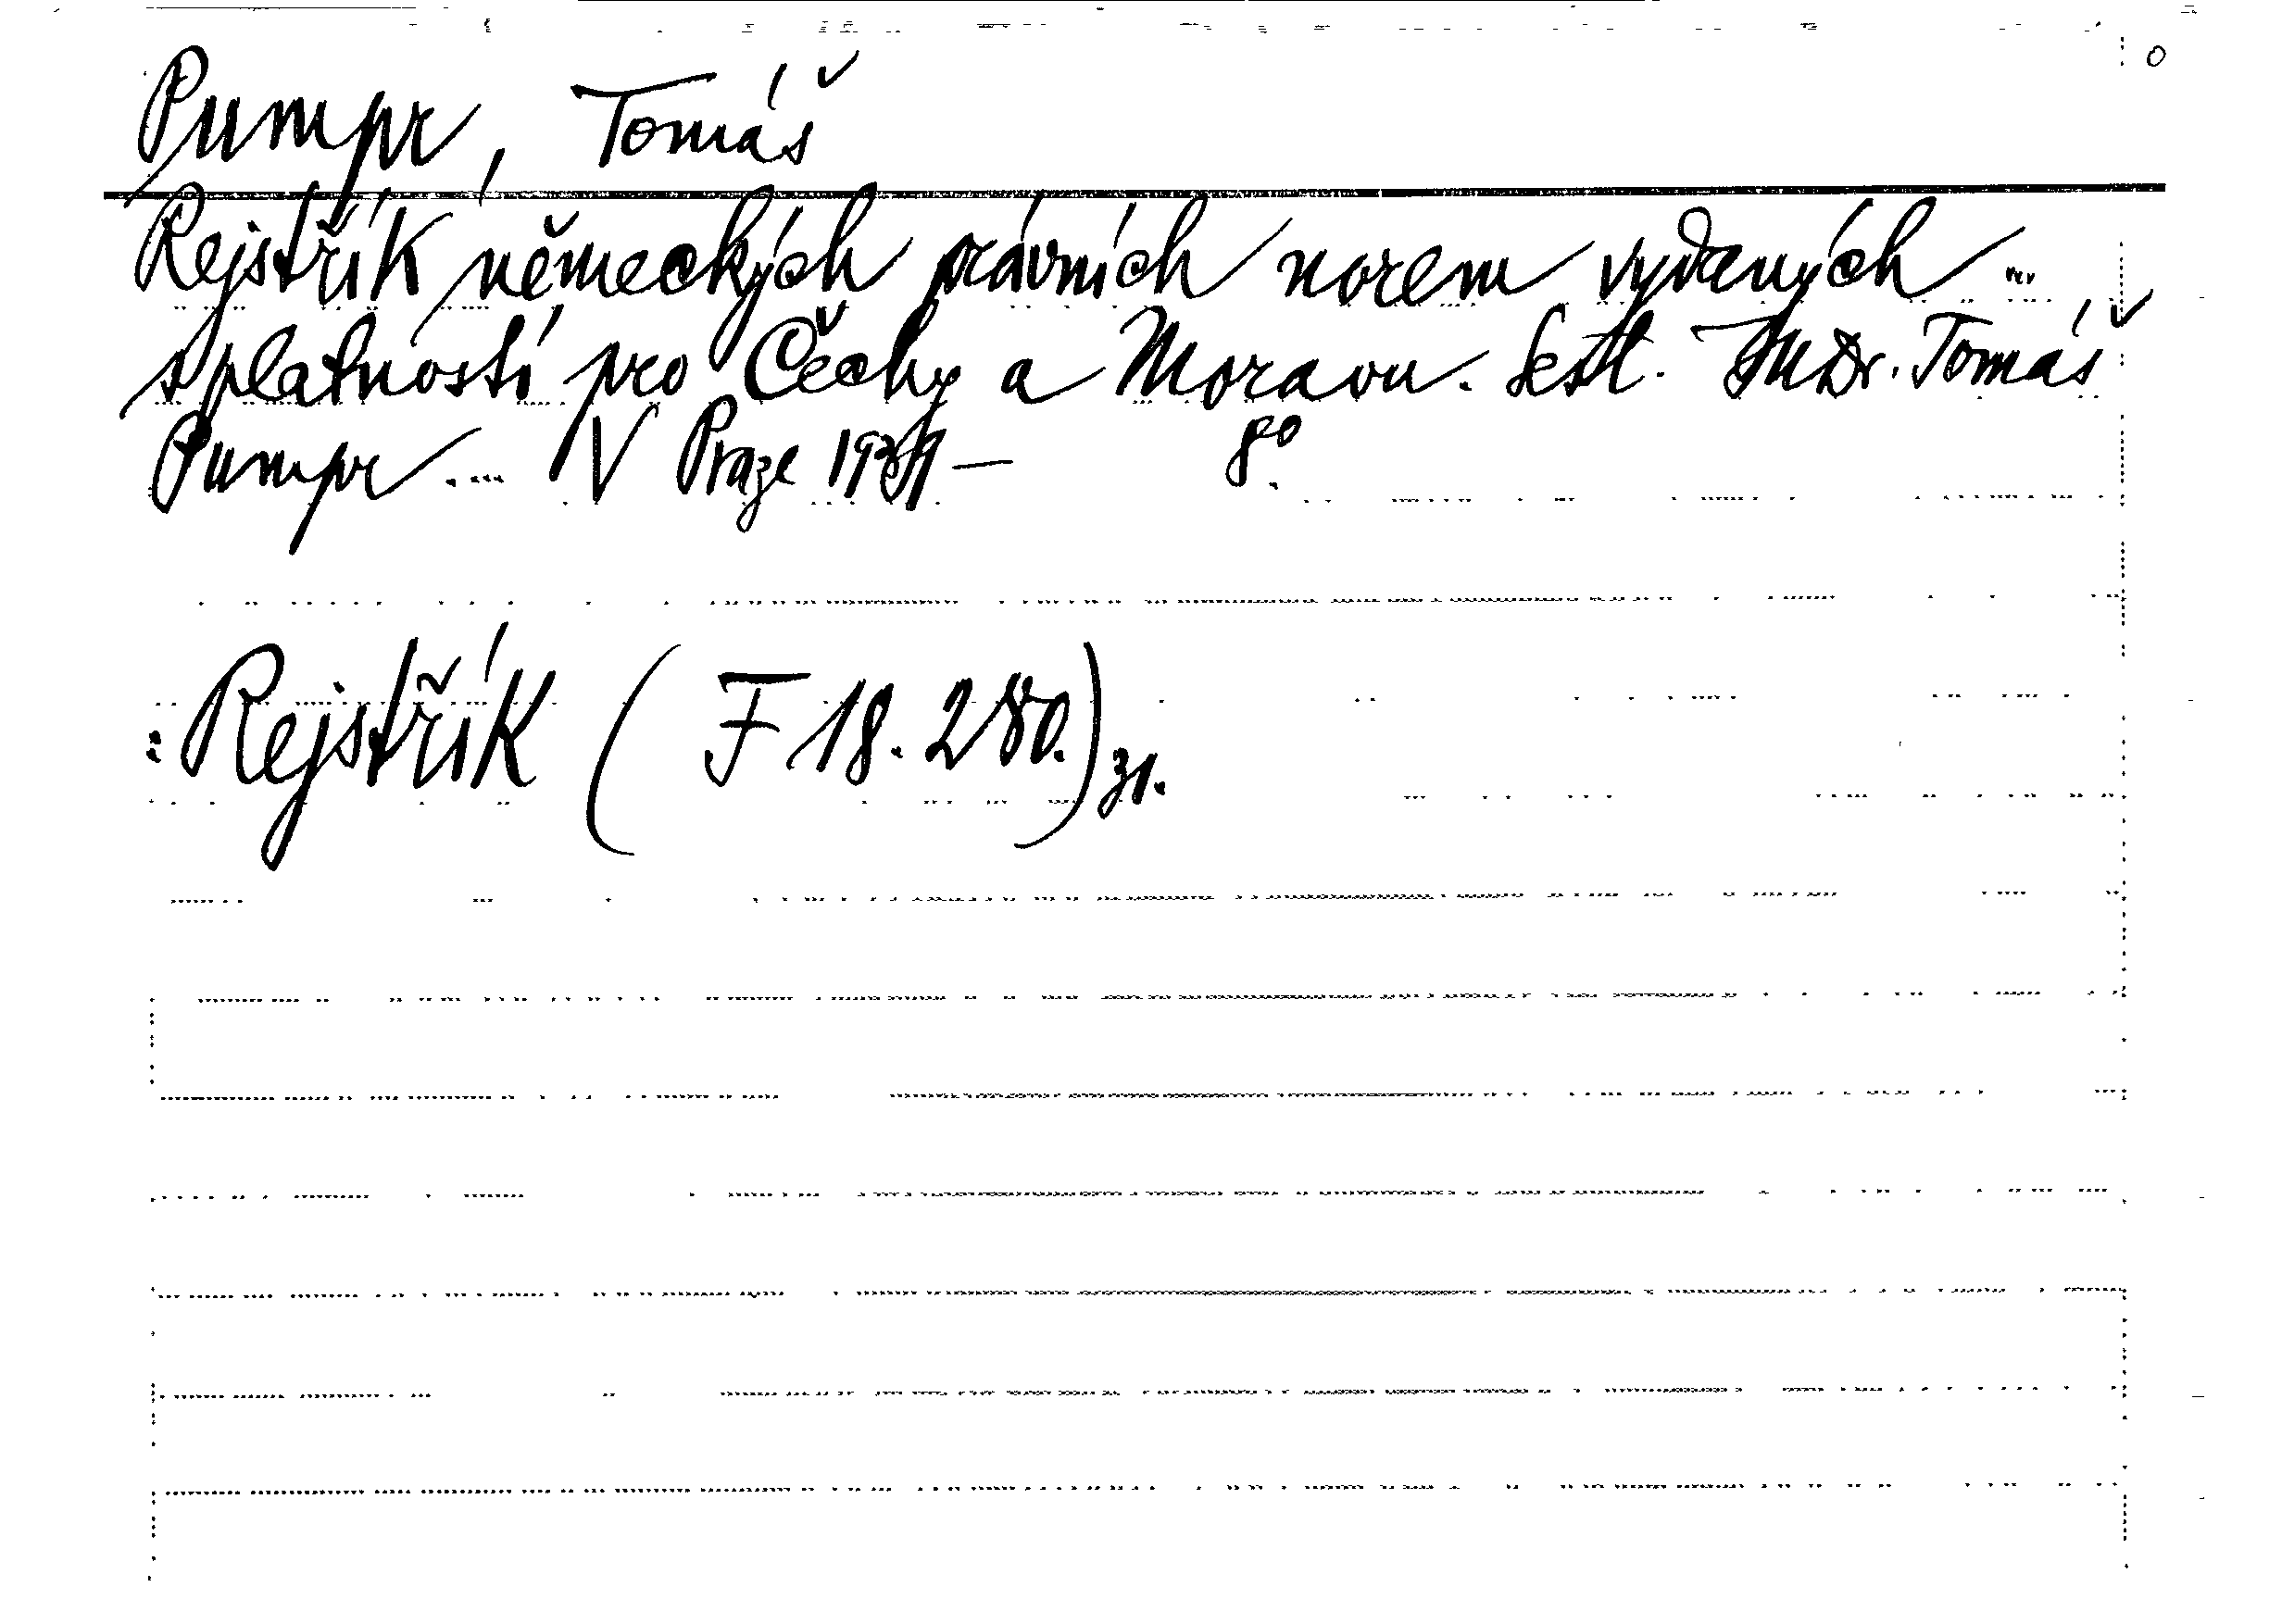 o
Pumpr, Tomáš
Rejstřík německých právních norem vydaných ...
s platností pro Čechy a Moravu. Sest. JUDr. Tomáš
Pumpr .... V Praze 1939 – 8°.
: Rejstřík ( F 18. 280.) 31.